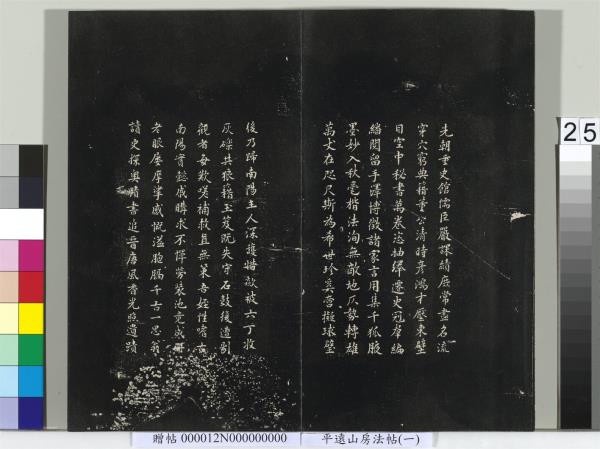 先朝重史館儒臣嚴課績庶常盡名流
穿穴窮典籍董公清時彥鴻才壓東壁
目空中秘書萬卷恣抽繹遷史冠群編
繙閱留手澤博徵諸家言用集千狐腋
墨妙入秋毫楷法洵無敵地仄勢轉雄
萬丈在咫尺斯為希世珍奚啻擬球璧
後乃歸南陽主人深護惜歘被六丁收
灰礫共狼藉玉笈既失守石鼓復遭
觀者每歎嗟補救且無策吾姪性嗜古
南陽實懿戚購求不憚勞裝池竟成冊
老眼屢摩挲感慨溢胸膈千古一思翁
讀史探奧賾書追晉唐風香光照遺蹟
25
贈帖 000012N000000000 平遠山房法帖(一)